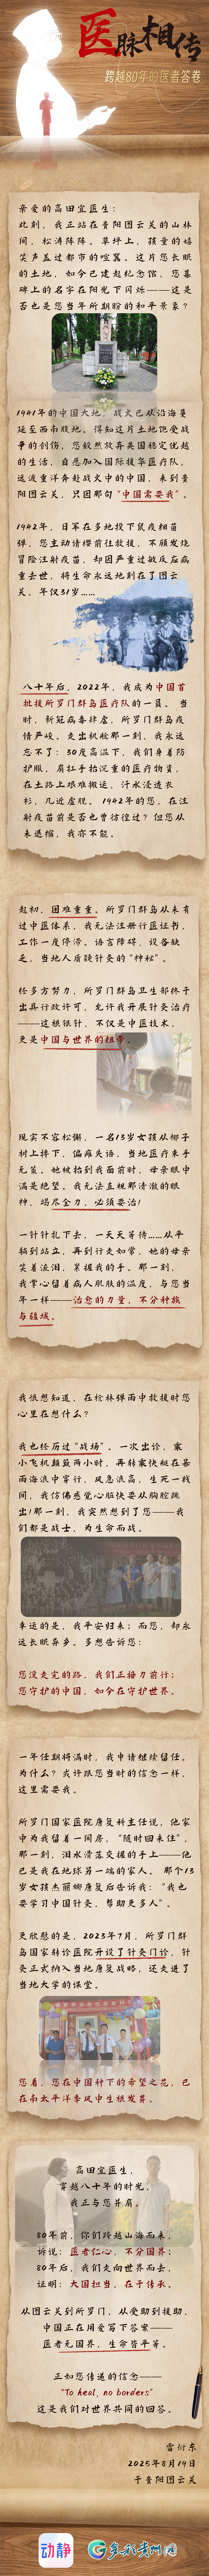 医脉相传
跨越80年的医者答卷
亲爱的高田宜医生：
此刻，我正站在贵阳图云关的山林
间，松涛阵阵。草坪上，孩童的嬉
笑声盖过都市的喧嚣，这片您长眠
的土地，如今已建起纪念馆，您墓
碑上的名字在阳光下闪烁——这是
否也是您当年所期盼的和平景象？
1941年的中国大地，战火已从沿海蔓
延至西南腹地。得知这片土地饱受战
争的创伤，您毅然放弃英国稳定优越
的生活，自愿加入国际援华医疗队，
远渡重洋奔赴战火中的中国，来到贵
阳图云关，只因那句“中国需要我”。
1942年，日军在多地投下鼠疫细菌
弹，您主动请缨前往救援，不顾发烧
冒险注射疫苗，却因严重过敏反应病
重去世，将生命永远地刻在了图云
关，年仅31岁……
八十年后，2022年，我成为中国首
批援所罗门群岛医疗队的一员。当
时，新冠病毒肆虐，所罗门群岛疫
情严峻。走出机舱那一刻，我永远
忘不了：30度高温下，我们身着防
护服，肩扛手抬沉重的医疗物资，
在土路上艰难搬运，汗水浸透长
衫，几近虚脱。1942年的您，在注
射疫苗前是否也曾彷徨过？但您从
未退缩，我亦不能。
起初，困难重重。所罗门群岛从未有
过中医体系，我无法注册行医证书，
工作一度停滞。语言障碍，设备缺
乏，当地人质疑针灸的“神秘”。
经多方努力，所罗门群岛卫生部终于
出具行政许可，允许我开展针灸治疗
——这根银针，不仅是中医技术，
更是中国与世界的纽带。
现实不容松懈，一名13岁女孩从椰子
树上摔下，偏瘫失语，当地医疗束手
无策。她被抬到我面前时，母亲眼中
满是绝望。我无法直视那清澈的眼
神，竭尽全力，必须要治！
一针针扎下去，一天天等待……从平
躺到站立，再到行走如常，她的母亲
笑着流泪，紧握我的手。那一刻，
我掌心留着病人肌肤的温度，与您当
年一样——治愈的力量，不分种族
与疆域。
我很想知道，在枪林弹雨中救援时您
心里在想什么？
我也经历过“战场”。一次出诊，乘
小飞机颠簸两小时，再转乘快艇在暴
雨海浪中穿行，风急浪高，生死一线
间，我仿佛感觉心脏快要从胸腔跳
出！那一刻，我突然想到了您——我
们都是战士，为生命而战。
幸运的是，我平安归来；而您，却永
远长眠异乡。多想告诉您：
您没走完的路，我们正接力前行；
您守护的中国，如今在守护世界。
一年任期将满时，我申请继续留任。
为什么？或许跟您当时的信念一样，
这里需要我。
所罗门国家医院康复科主任说，他家
中为我留着一间房，“随时回来住”，
那一刻，泪水滑落交握的手上——他
已是我在地球另一端的家人。那个13
岁女孩杰丽娜康复后告诉我：“我也
要学习中国针灸，帮助更多人”。
更欣慰的是，2023年7月，所罗门群
岛国家转诊医院开设了针灸门诊，针
灸正式纳入当地康复战略，还走进了
当地大学的课堂。
您看，您在中国种下的希望之花，已
在南太平洋季风中生根发芽。
高田宜医生，
穿越八十年的时光，
我正与您并肩。
80年前，你们跨越山海而来，
诉说：医者仁心，不分国界；
80年后，我们走向世界而去，
证明：大国担当，在于传承。
从图云关到所罗门，从受助到援助，
中国正在用爱写下答案——
医者无国界，生命皆平等。
正如您传递的信念——
“To heal, no borders”
这是我们对世界共同的回答。
雷衍东
2025年8月19日
于贵阳图云关
动静
多彩贵州网